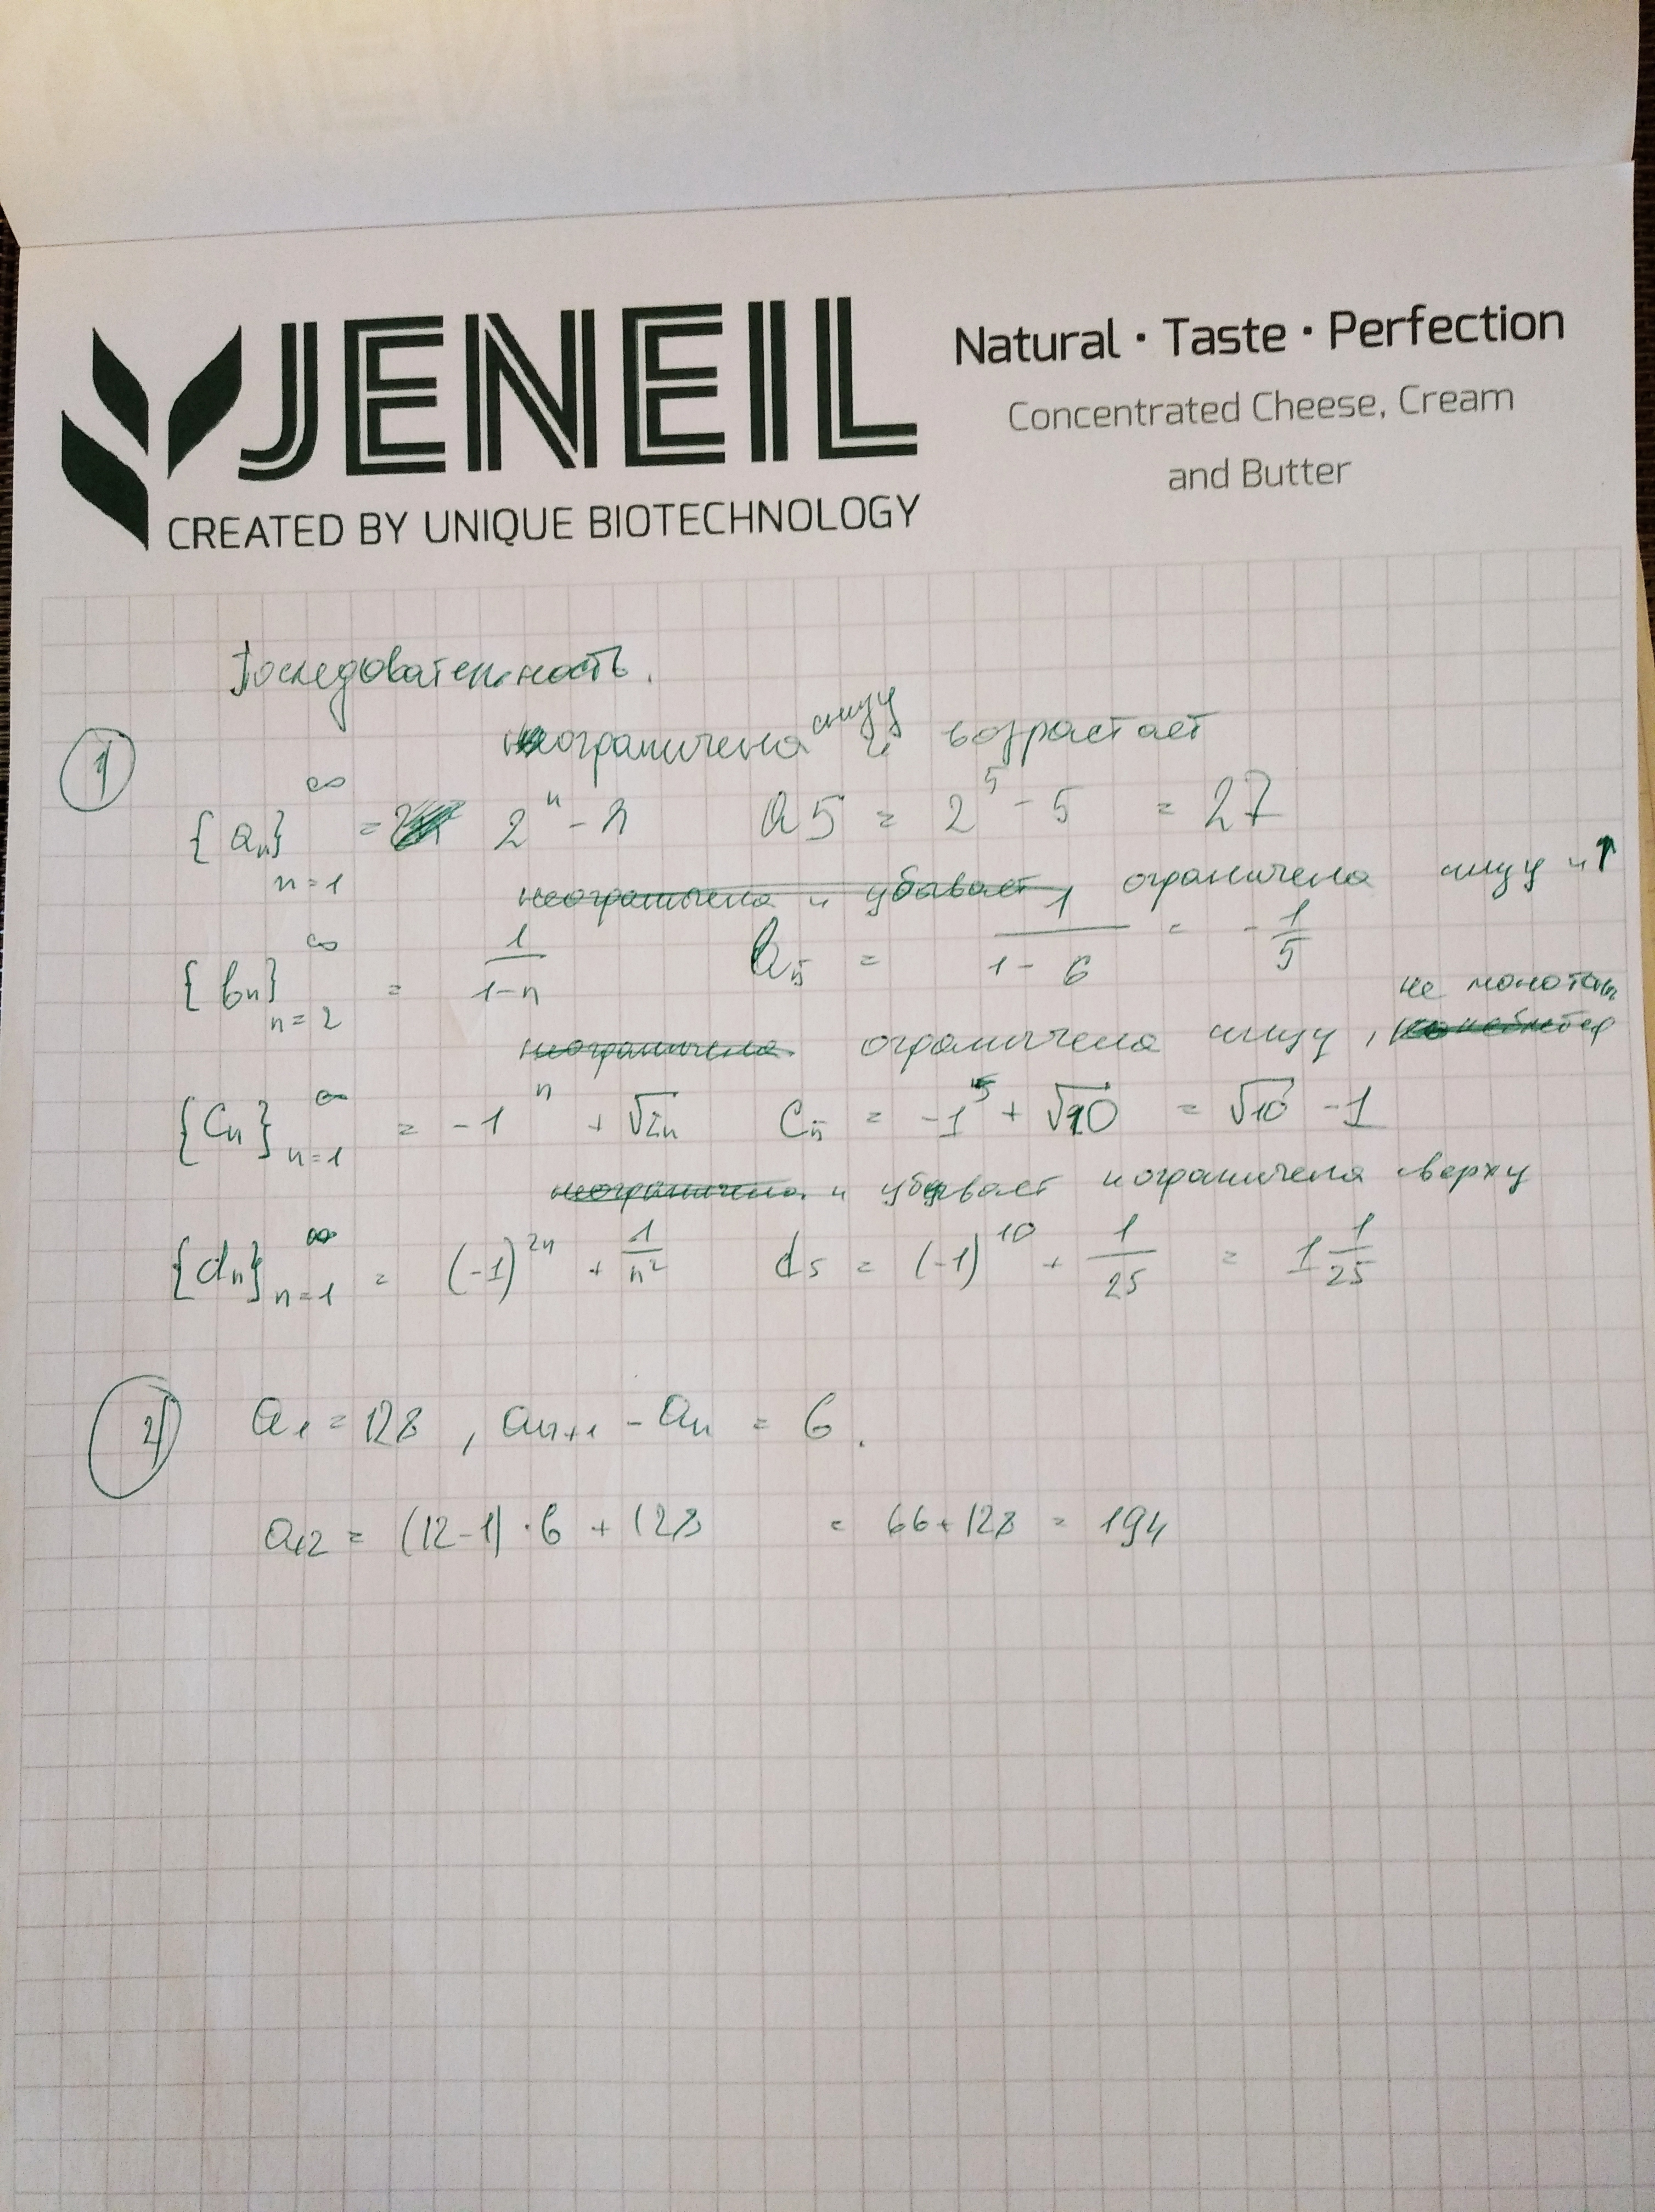 JENEIL
CREATED BY UNIQUE BIOTECHNOLOGY
Natural · Taste · Perfection
Concentrated Cheese, Cream
and Butter
Последовательность.
ограничена снизу и возрастает
① {aₙ}ₙ₌₁^∞ = 2ⁿ - n   a5 = 2⁵ - 5 = 27
неограничена и убывает ограничена снизу и ↑
{bₙ}ₙ₌₂^∞ = 1/(1-n)   b₅ = 1/(1-6) = -1/5
неограничена ограничена снизу, не монотон
{Cₙ}ₙ₌₁^∞ = -1ⁿ + √2n   C₅ = -1⁵ + √10 = √10 - 1
неограничена и убывает и ограничена сверху
{dₙ}ₙ₌₁^∞ = (-1)²ⁿ + 1/n²   d₅ = (-1)¹⁰ + 1/25 = 1 1/25
② a₁ = 128, aₙ₊₁ - aₙ = 6.
a₁₂ = (12-1)·6 + 128 = 66+128 = 194